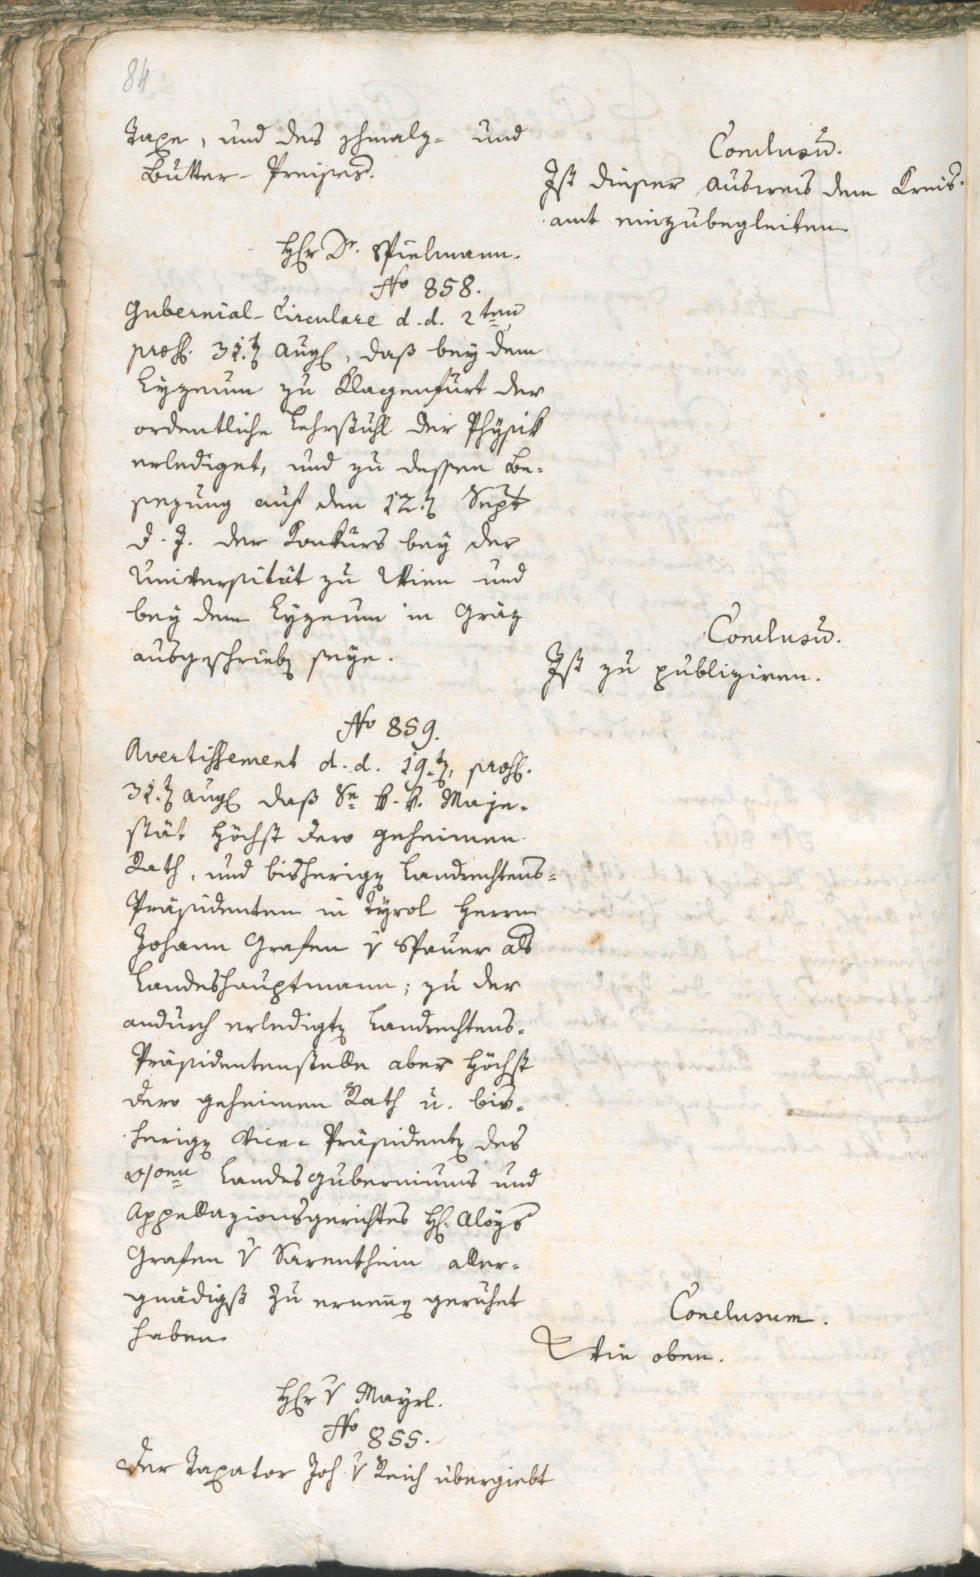 84
Taxe, und des Schmalz- und
Butter-Preises.
Conclusū.
Ist dieser Ausweis dem Kreis-
amt einzubegleiten
H̄r Dr. Spielmann.
No 858.
Gubernial-Circulare d. d. 2ten
præs. 31.ten Aug., daß bey dem
Lyzeum zu Klagenfurt der
ordentliche Lehrstuhl der Physik
erlediget, und zu dessen Be-
sezung auf den 12.ten Sept
d. J. der Konkurs bey der
Universität zu Wien und
bey dem Lyzeum in Gräz
ausgeschrieben seye.
Conclusū.
Ist zu publiziren.
No 859.
Avertissement d. d. 19.ten, præs.
31.ten Aug. daß Se k. k. Maje-
stät Höchst dero geheimen
Rath, und bisherigen Landrechtens-
Präsidenten in Tyrol Herrn
Johann Grafen v Spauer als
Landeshauptmann; zu der
andurch erledigten Landrechtens-
Präsidentenstelle aber Höchst
dero geheimen Rath u. bis-
herigen Vice-Präsidenten des
Landesguberniums und
Appellazionsgerichtes H. Aloys
Grafen v Sarentheim aller-
gnädigst zu ernennen geruhet
haben
Conclusum.
Wie oben.
H̄r v Mayrl.
No 855.
Der Taxator Joh v Reich übergiebt